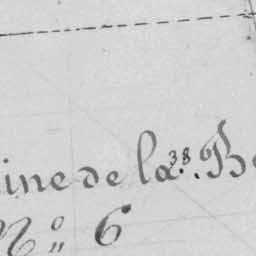 ine de la
38
N° 6